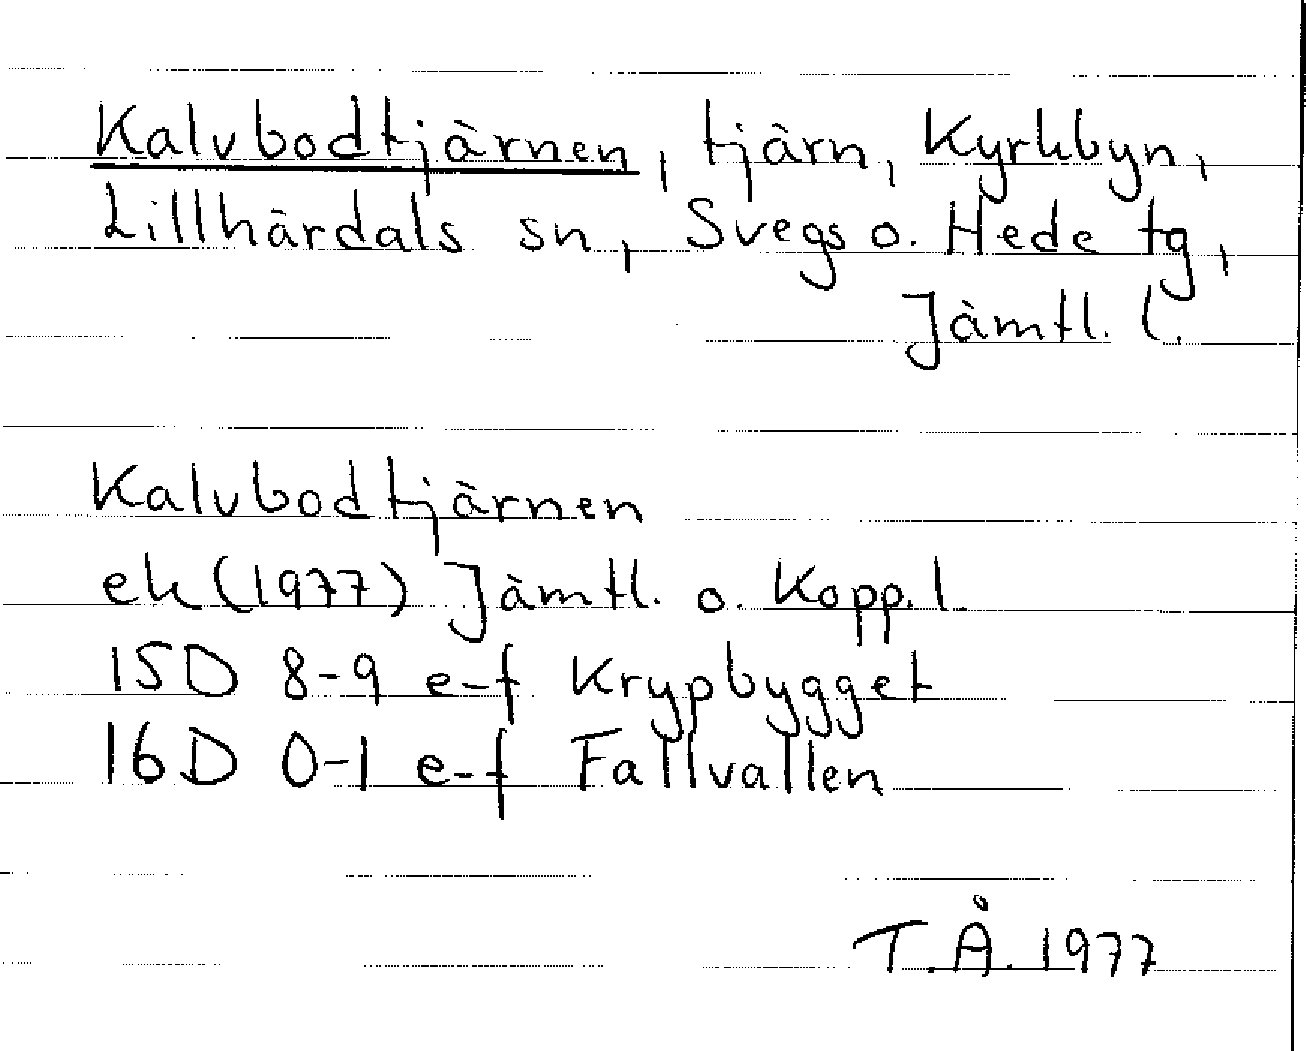 Kalvbodtjärnen, tjärn, Kyrkbyn,
Lillhärdals sn, Svegs o. Hede tg,
Jämtl. l.
Kalvbodtjärnen
ek (1977) Jämtl. o. Kopp. l.
15D 8-9 e-f Krypbygget
16D 0-1 e-f Fallvallen
T.Å. 1977